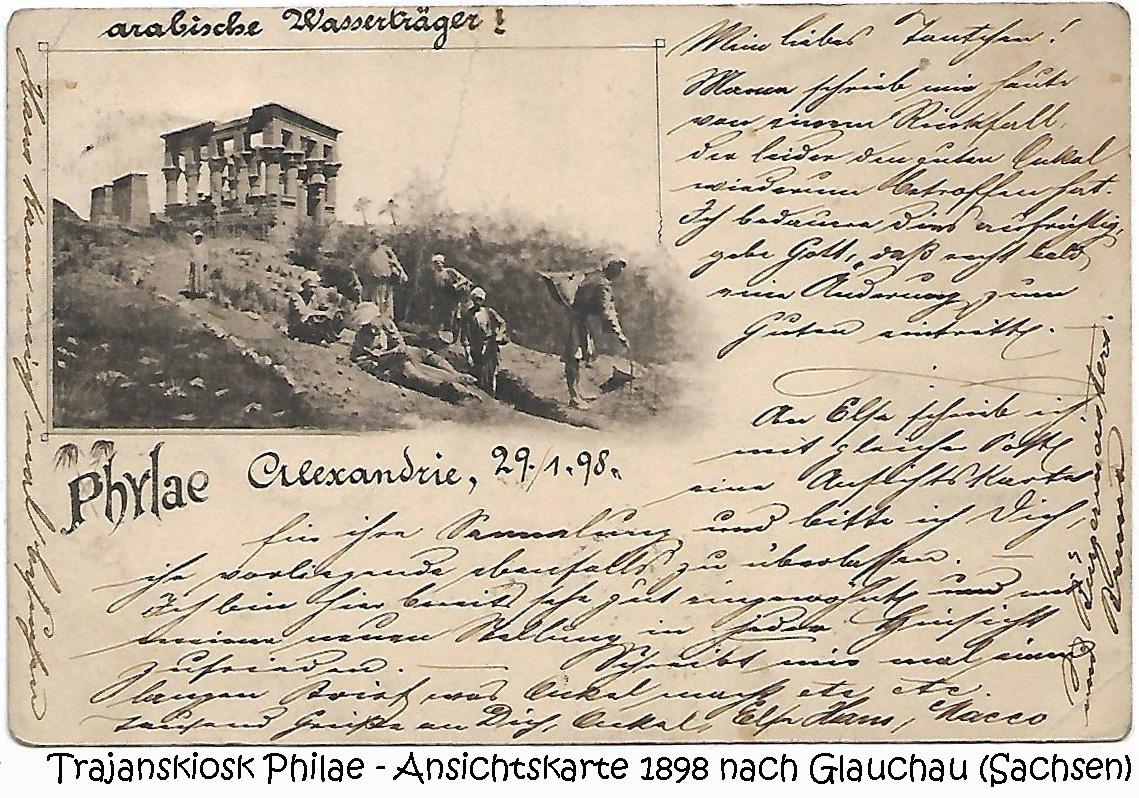 arabische Wasserträger!
Mein liebes Tantchen!
Mama schrieb mir heute
von einem Rückfall,
der leider den guten Onkel
wiederum betroffen hat.
Ich bedauere dies aufrichtig,
gebe Gott, daß recht bald
eine Änderung zum
Guten eintritt.
Phylae
Alexandrie, 29./1.98.
An Else schrieb ich
mit gleicher Post
eine Ansichtskarte
für ihre Sammlung und bitte ich Dich,
ihr vorliegende ebenfalls zu überlassen.
Ich bin hier bereits sehr gut eingewöhnt und mit
meiner neuen Stellung in jeder Hinsicht
zufrieden. — Schreibt mir mal einen
langen Brief was Onkel macht etc etc.
tausend Grüße an Dich, Onkel, Else Hans, Macco
und Bürgermeisters.
Hans
Trajanskiosk Philae - Ansichtskarte 1898 nach Glauchau (Sachsen)